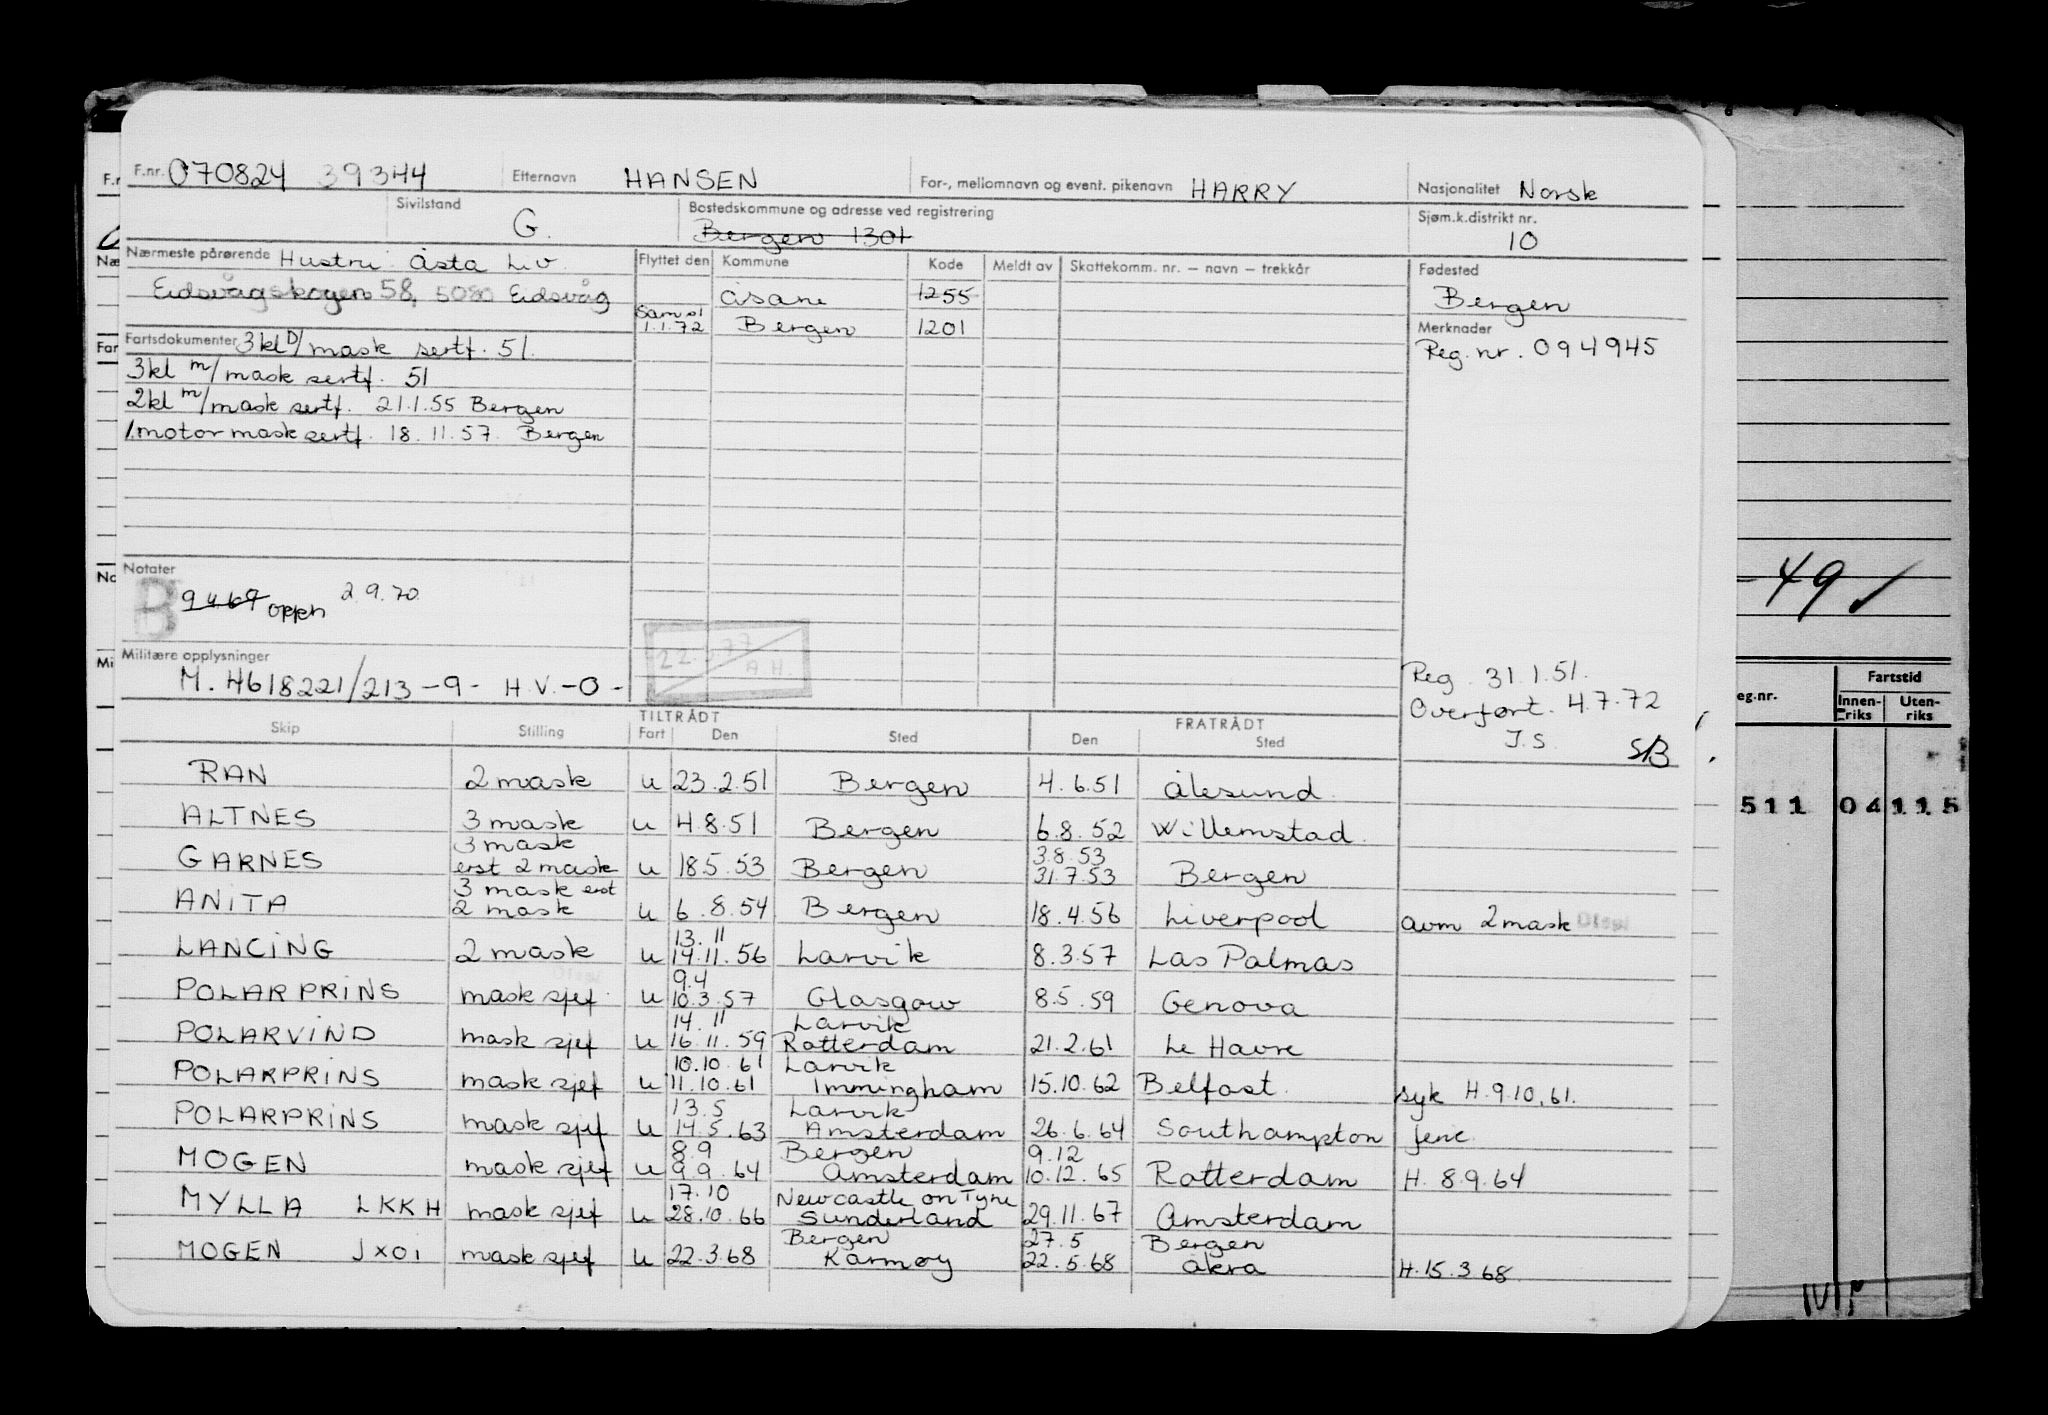 F.nr. 070824 39344 Etternavn HANSEN For-, mellomnavn og event. pikenavn HARRY Nasjonalitet Norsk
Sivilstand G. Bostedskommune og adresse ved registrering Bergen 1301 Sjøm.k.distrikt nr. 10
Nærmeste pårørende Hustru Åsta Liv
Eidsvågskogen 58, 5080 Eidsvåg
Flyttet den Kommune Kode Meldt av Skattekomm. nr. – navn – trekkår
Åsane 1255
Saml 1.1.72 Bergen 1201
Fødested
Bergen
Merknader
Reg. nr. 094945
Fartsdokumenter 3kl D/mask sertf. 51.
3kl m/mask sertf. 51
2kl m/mask sertf. 21.1.55 Bergen
1.motormasksertf. 18.11.57. Bergen
Notater
B oppn 2.9.70
Militære opplysninger
M. 4618221/213-9- H.V.-0-
22. .77
A.H.
Reg. 31.1.51.
Overført. 4.7.72
J.S. S/B
-49
eg.nr. Fartstid
Innen-riks Uten-riks
511 04 115
TILTRÅDT FRATRÅDT
Skip Stilling Fart Den Sted Den Sted
RAN 2 mask u 23.2.51 Bergen 4.6.51 Ålesund
ALTNES 3 mask u 4.8.51 Bergen 6.8.52 Willemstad
3 mask 3.8.53
GARNES erst 2 mask u 18.5.53 Bergen 31.7.53 Bergen
3 mask erst
ANITA 2 mask u 6.8.54 Bergen 18.4.56 Liverpool avm 2 mask
13.11
LANCING 2 mask u 14.11.56 Larvik 8.3.57 Las Palmas
9.4
POLARPRINS mask sjef u 10.3.57 Glasgow 8.5.59 Genova
14.11 Larvik
POLARVIND mask sjef u 16.11.59 Rotterdam 21.2.61 Le Havre
10.10.61 Larvik
POLARPRINS mask sjef u 11.10.61 Immingham 15.10.62 Belfast syk H.9.10.61.
13.5 Larvik
POLARPRINS mask sjef u 14.5.63 Amsterdam 26.6.64 Southampton ferie
8.9 Bergen 9.12
MOGEN mask sjef u 9.9.64 Amsterdam 10.12.65 Rotterdam H. 8.9.64
17.10 Newcastle on Tyne
MYLLA LKKH mask sjef u 28.10.66 Sunderland 29.11.67 Amsterdam
Bergen 27.5 Bergen
MOGEN JXOI mask sjef u 22.3.68 Karmøy 22.5.68 Åkra H.15.3.68